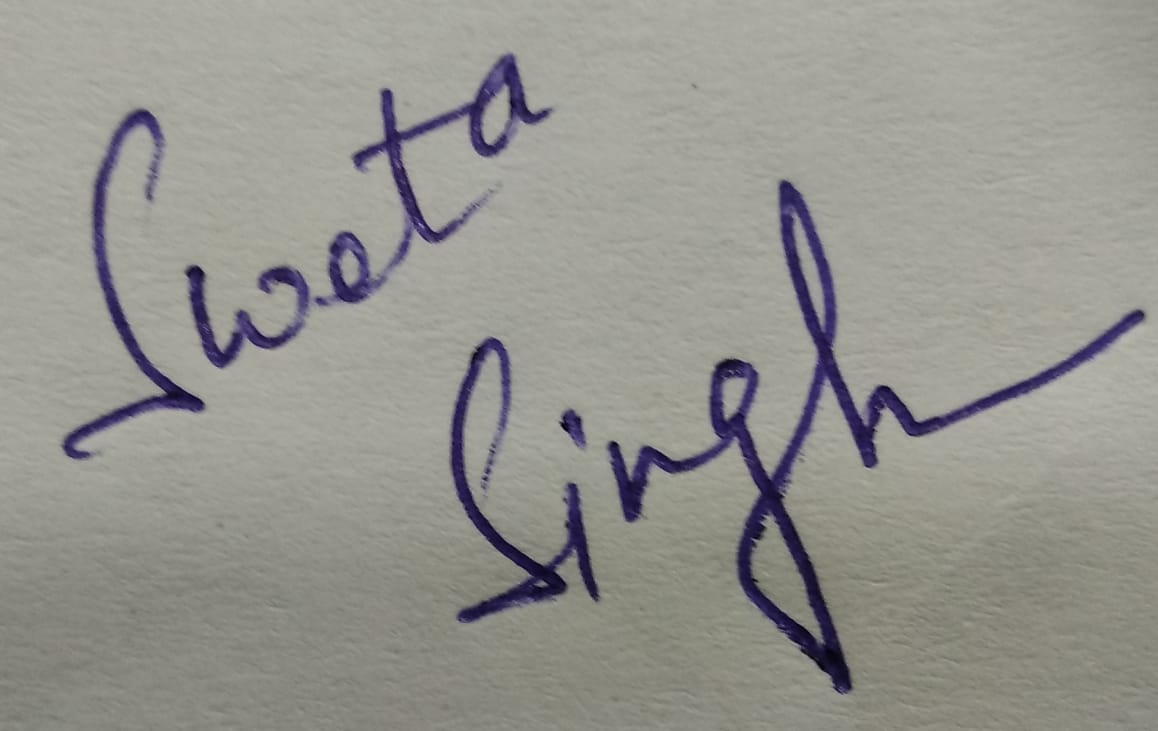 Sweta
Singh